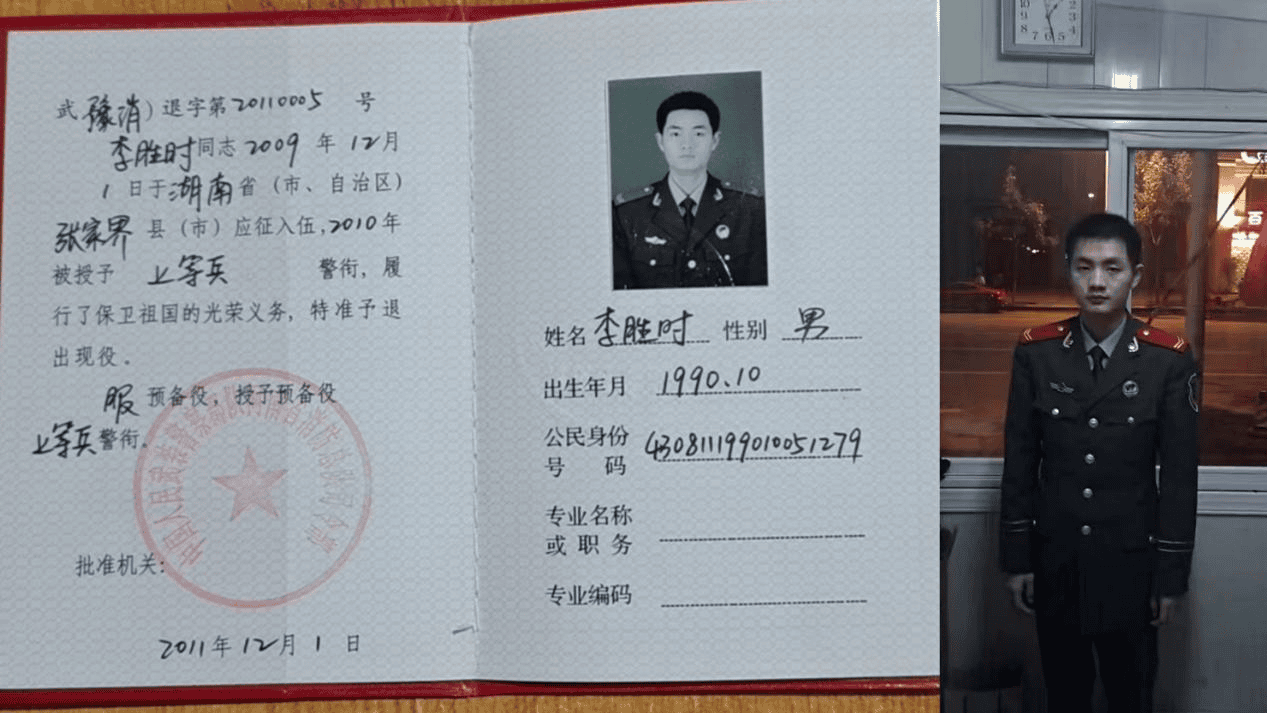 武(豫消)退字第20110005 号
李胜时同志2009 年 12月
1 日于湖南省（市、自治区）
张家界 县（市）应征入伍，2010年
被授予 上等兵 警衔，履
行了保卫祖国的光荣义务，特准予退
出现役。
服 预备役，授予预备役
上等兵警衔。
批准机关：
2011年 12月 1 日
姓名 李胜时 性别 男
出生年月 1990.10
公民身份
号 码 430811199010051279
专业名称
或 职 务
专业编码
10 2
9 3
8 4
7 6 5
百